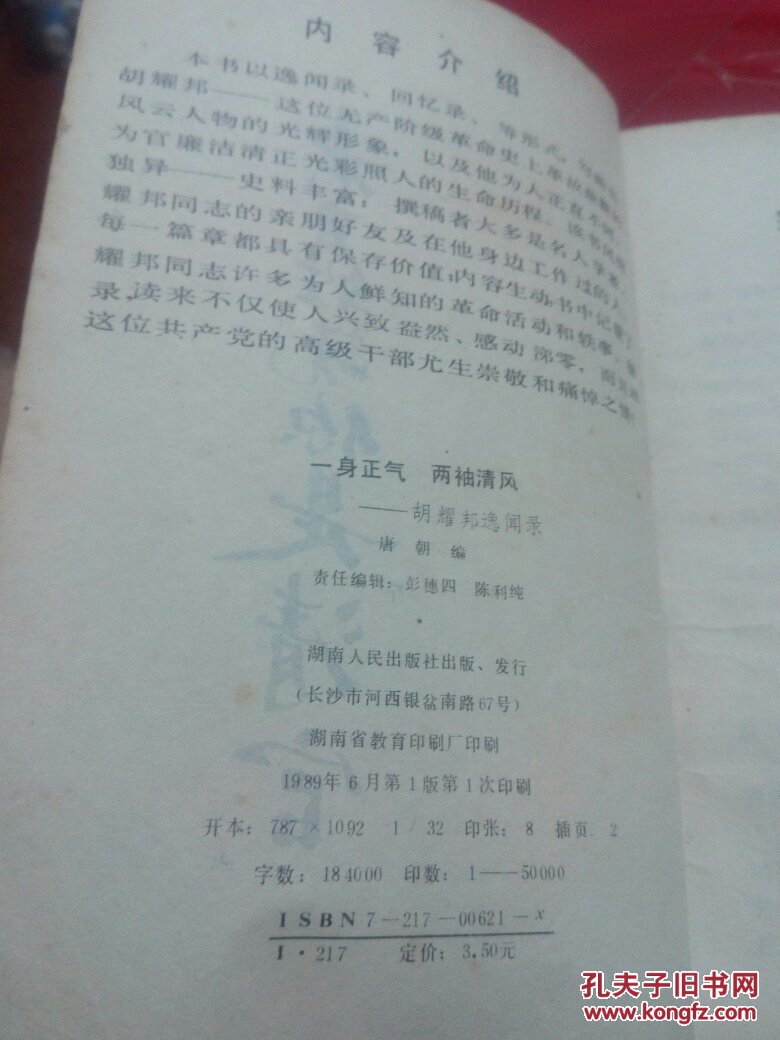 内容介绍
本书以逸闻录、回忆录、等形式,
胡耀邦——这位无产阶级革命史上
风云人物的光辉形象,以及他为人正直
为官廉洁清正光彩照人的生命历程。该书
独异——史料丰富;撰稿者大多是名人学者、
耀邦同志的亲朋好友及在他身边工作过的人
每一篇章都具有保存价值;内容生动书中记
耀邦同志许多为人鲜知的革命活动和轶事、
录,读来不仅使人兴致盎然、感动涕零,而
这位共产党的高级干部尤生崇敬和痛悼之
一身正气 两袖清风
——胡耀邦逸闻录
唐朝编
责任编辑:彭穗四 陈利纯
*
湖南人民出版社出版、发行
(长沙市河西银盆南路67号)
湖南省教育印刷厂印刷
1989年6月第1版第1次印刷
开本:787×1092 1/32 印张:8 插页 2
字数:184000 印数:1——50000
ISBN7—217—00621—x
I·217 定价:3.50元
孔夫子旧书网
www.kongfz.com